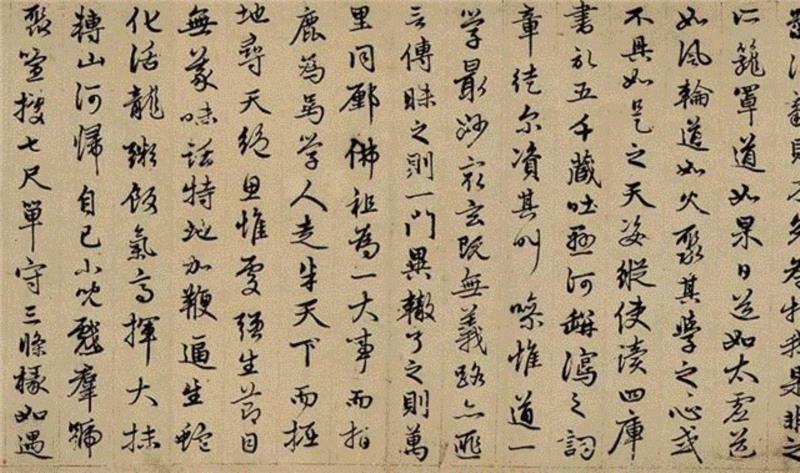 物我是非之
籠罩道如杲日道如太虛道
如風輪道如火聚其學之心或
不具如是之天姿縱使讀四庫
書於五千藏吐懸河辯瀉之詞
章徒尔資其叫噪惟道一
學最妙最玄既無義路亦匪
言傳昧之則一門異轍了之則萬
里同鄽佛祖為一大事而指
鹿為馬學人走半天下而掘
地尋天絕思惟處強生節目
無義味話特地加鞭逼生蛇
化活龍粥飯氣高揮大抹
轉山河歸自己小羣
聚搜七尺單守三條椽如遇